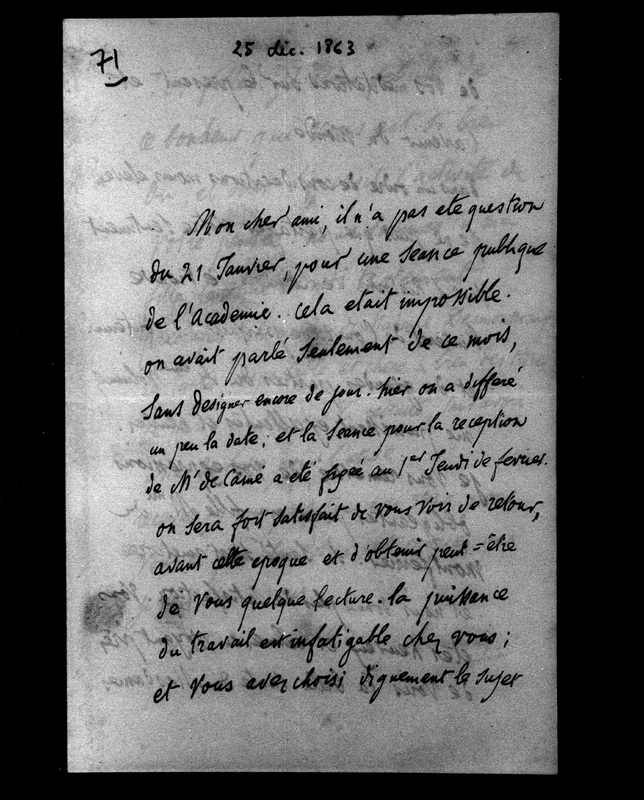 71
25 déc. 1863
Mon cher ami, il n'a pas eté question
du 21 Janvier, pour une seance publique
de l'academie. cela etait impossible.
on avait parlé seulement de ce mois,
sans designer encore de jour. hier on a differé
un peu la date; et la seance pour la reception
de Mr de Carné a eté fixée au 1er Jeudi de fevrier.
on sera fort satisfait de vous voir de retour,
avant cette epoque et d'obtenir peut=être
de vous quelque lecture. la puissance
du travail est infatigable chez vous;
et vous avez choisi dignement le sujet